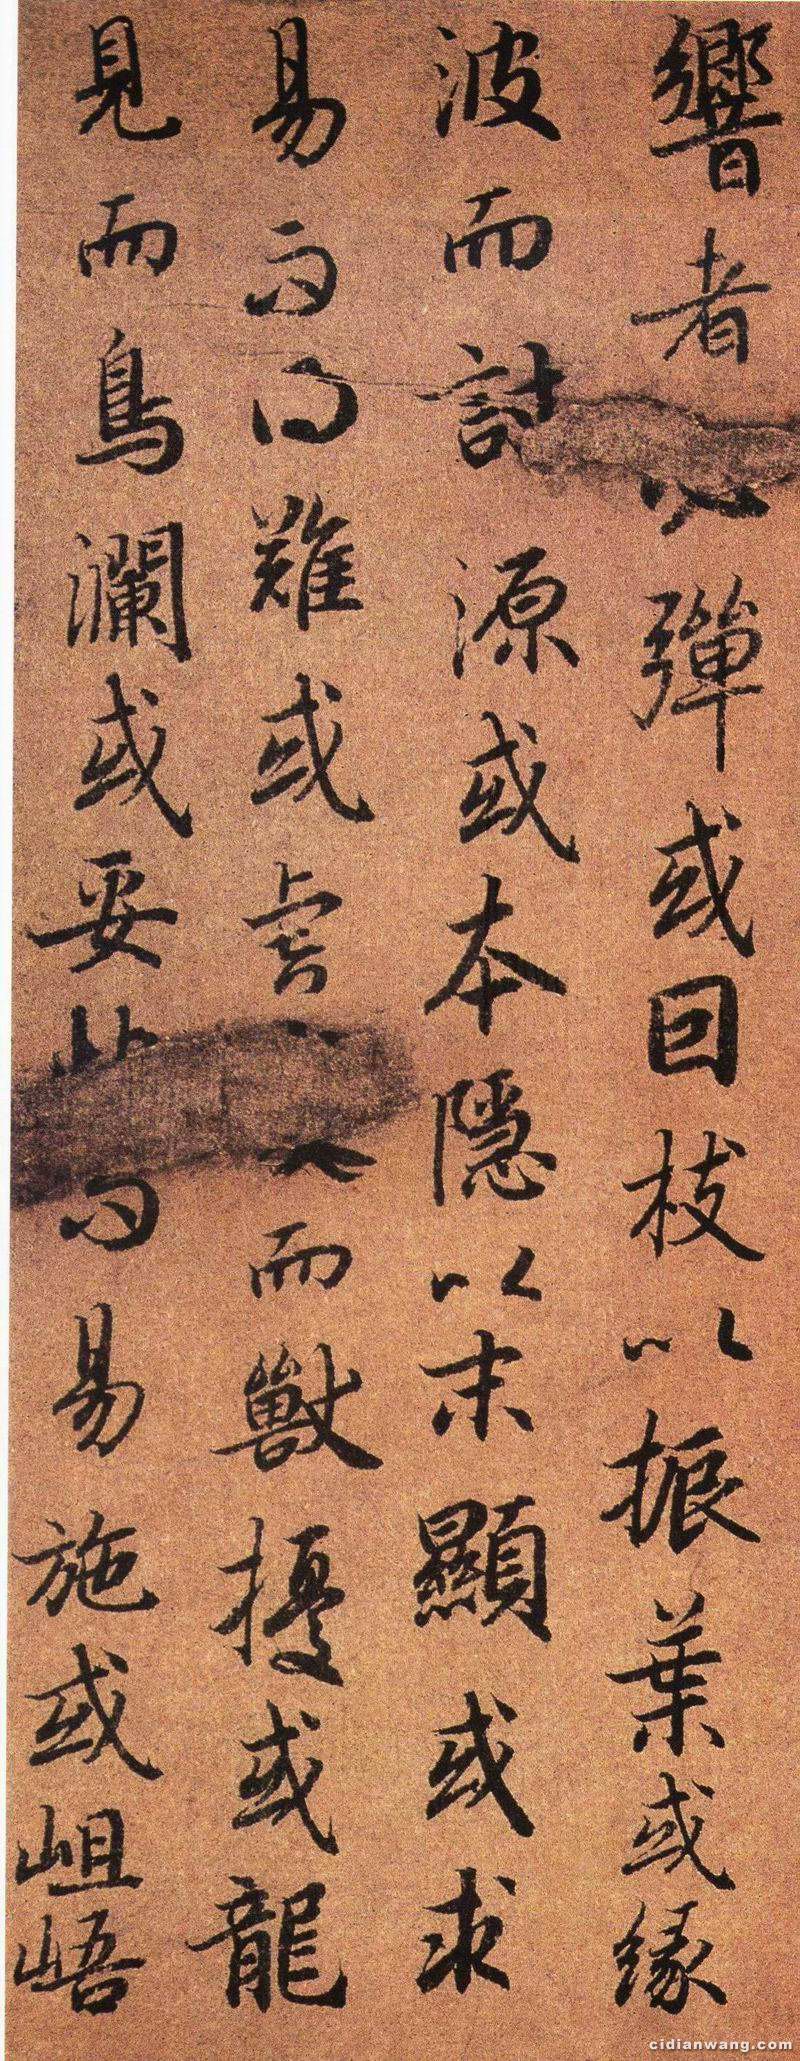 響者彈或因枝以振葉或緣
波而討源或本隱以末顯或求
易而得難或虎而獸擾或龍
見而鳥瀾或妥而易施或岨峿
cidianwang.com